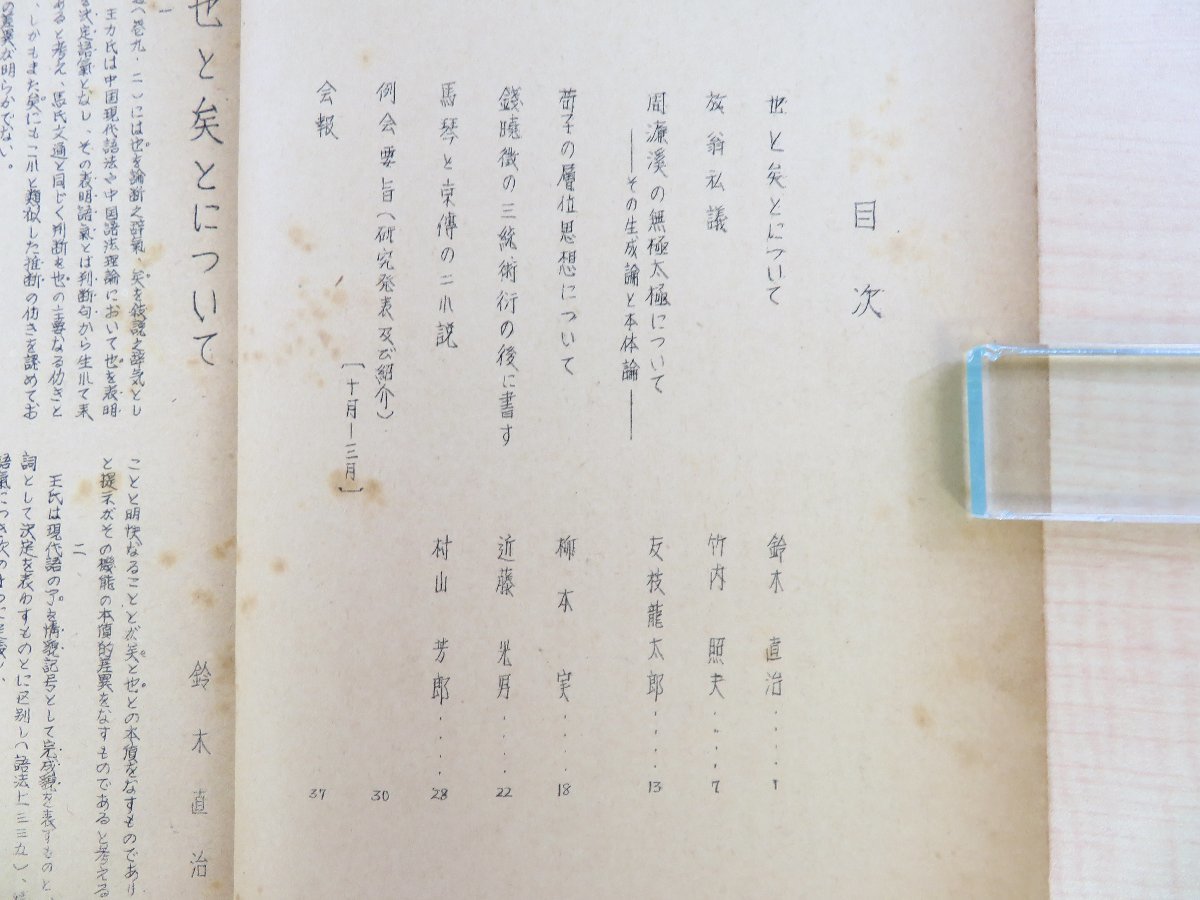 目次
也と矣とについて 鈴木直治‥‥1
放翁私議 竹内照夫‥‥7
周濂溪の無極太極について
――その生成論と本体論―― 友枝龍太郎‥‥13
荀子の層位思想について 柳本実‥‥18
錢曉徴の三統術衍の後に書す 近藤光男‥‥22
馬琴と京傳の二小説 村山芳郎‥‥28
例会要旨(研究発表及び紹介) 30
[十月―三月]
会報 37
也と矣とについて
鈴木直治
一
巻九・二)には也を論断之辞氣、矣を
王力氏は中国現代語法や中国語法理論において也を表明
決定語氣となし、その表明語氣とは判断句から生れて来
あると考え、馬氏文通と同じく判断を也の主要なる仂きと
、しかもまた矣にもこれと類似した推断の仂きを認めてお
の差異が明らかでない。
ことと明快なることとが矣と也との本質をなすものであり
と提示がその機能の本質的差異をなすものであると考える
二
王氏は現代語の了を情貌記号として完成貌を表すものと、
詞として決定を表わすものとに区別し(語法上三三九)、